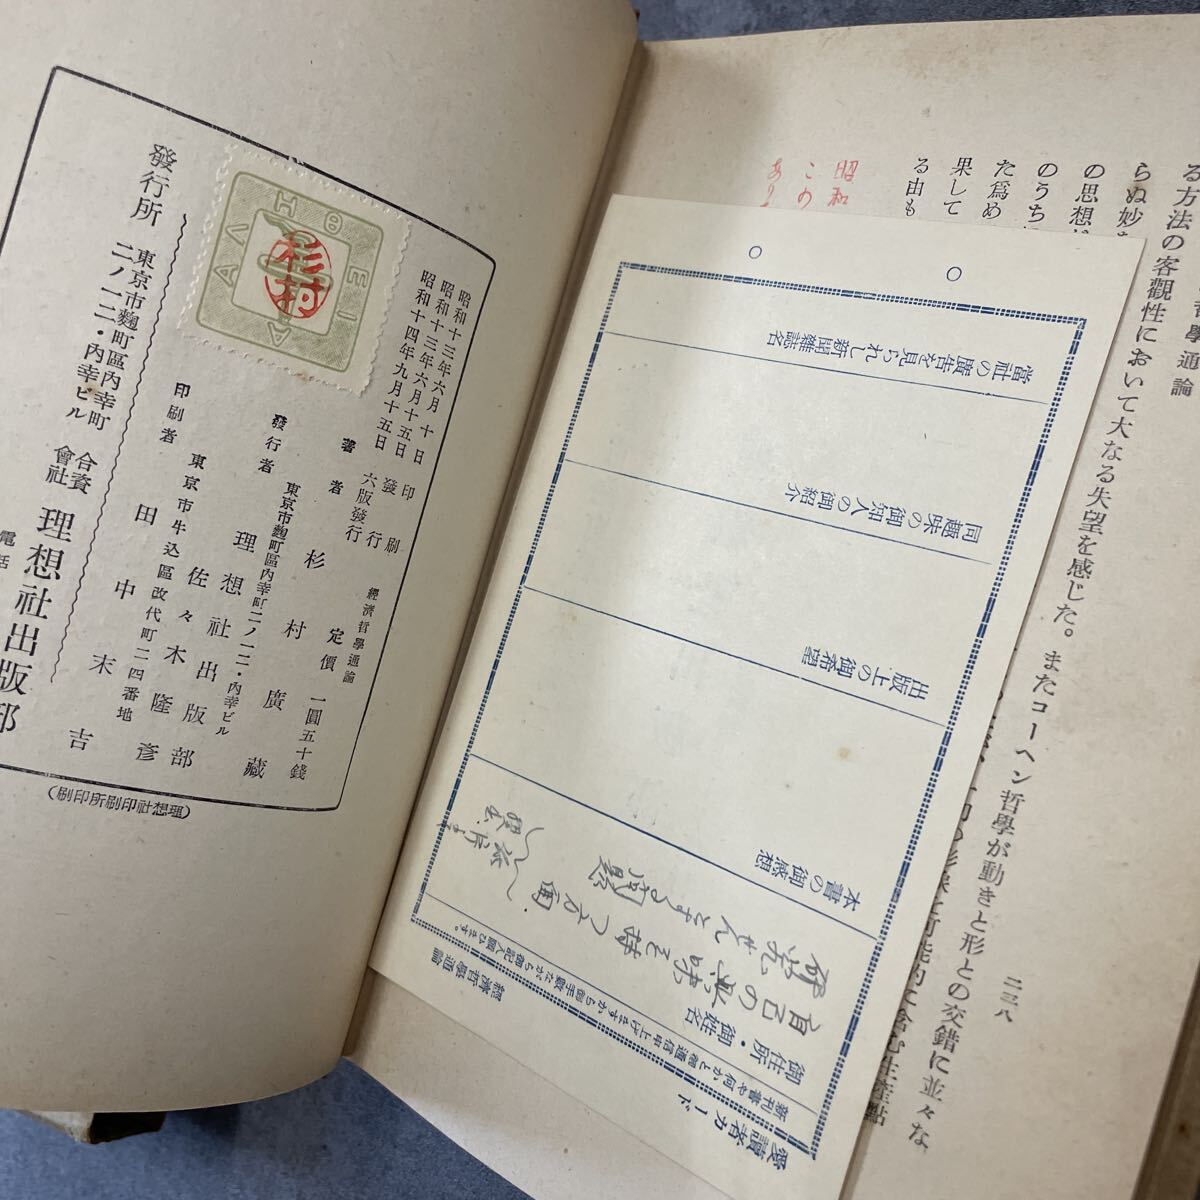 哲學通論
る方法の客觀性において大なる失望を感じた。またコーヘン哲學が動きと形との交錯に並々な
らぬ妙
の思想
のうち
た爲め
果して
る由も
二三八
昭和
この
あり
愛讀者カード
新刊書や何かと御通信申上げますから御手數ながら御記入願ひます。
經濟哲學通論
御住所・御姓名
本書の御感想
出版上の御希望
同趣味の御知人の御紹介
當社の廣告を見られし新聞雜誌名
自己の興味
研究せんとする問題
昭和十三年六月十日印刷
昭和十三年六月十五日發行
昭和十四年九月十五日六版發行
經濟哲學通論
定價一圓五十錢
著者 杉村廣藏
東京市麴町區內幸町二ノ一二・內幸ビル
發行者 理想社出版部
佐々木隆彥
東京市牛込區改代町二四番地
印刷者 田中末吉
發行所
東京市麴町區內幸町
二ノ一二・內幸ビル
合資會社 理想社出版部
電話
(理想社印刷所印刷)
杉村
ALETHEIA